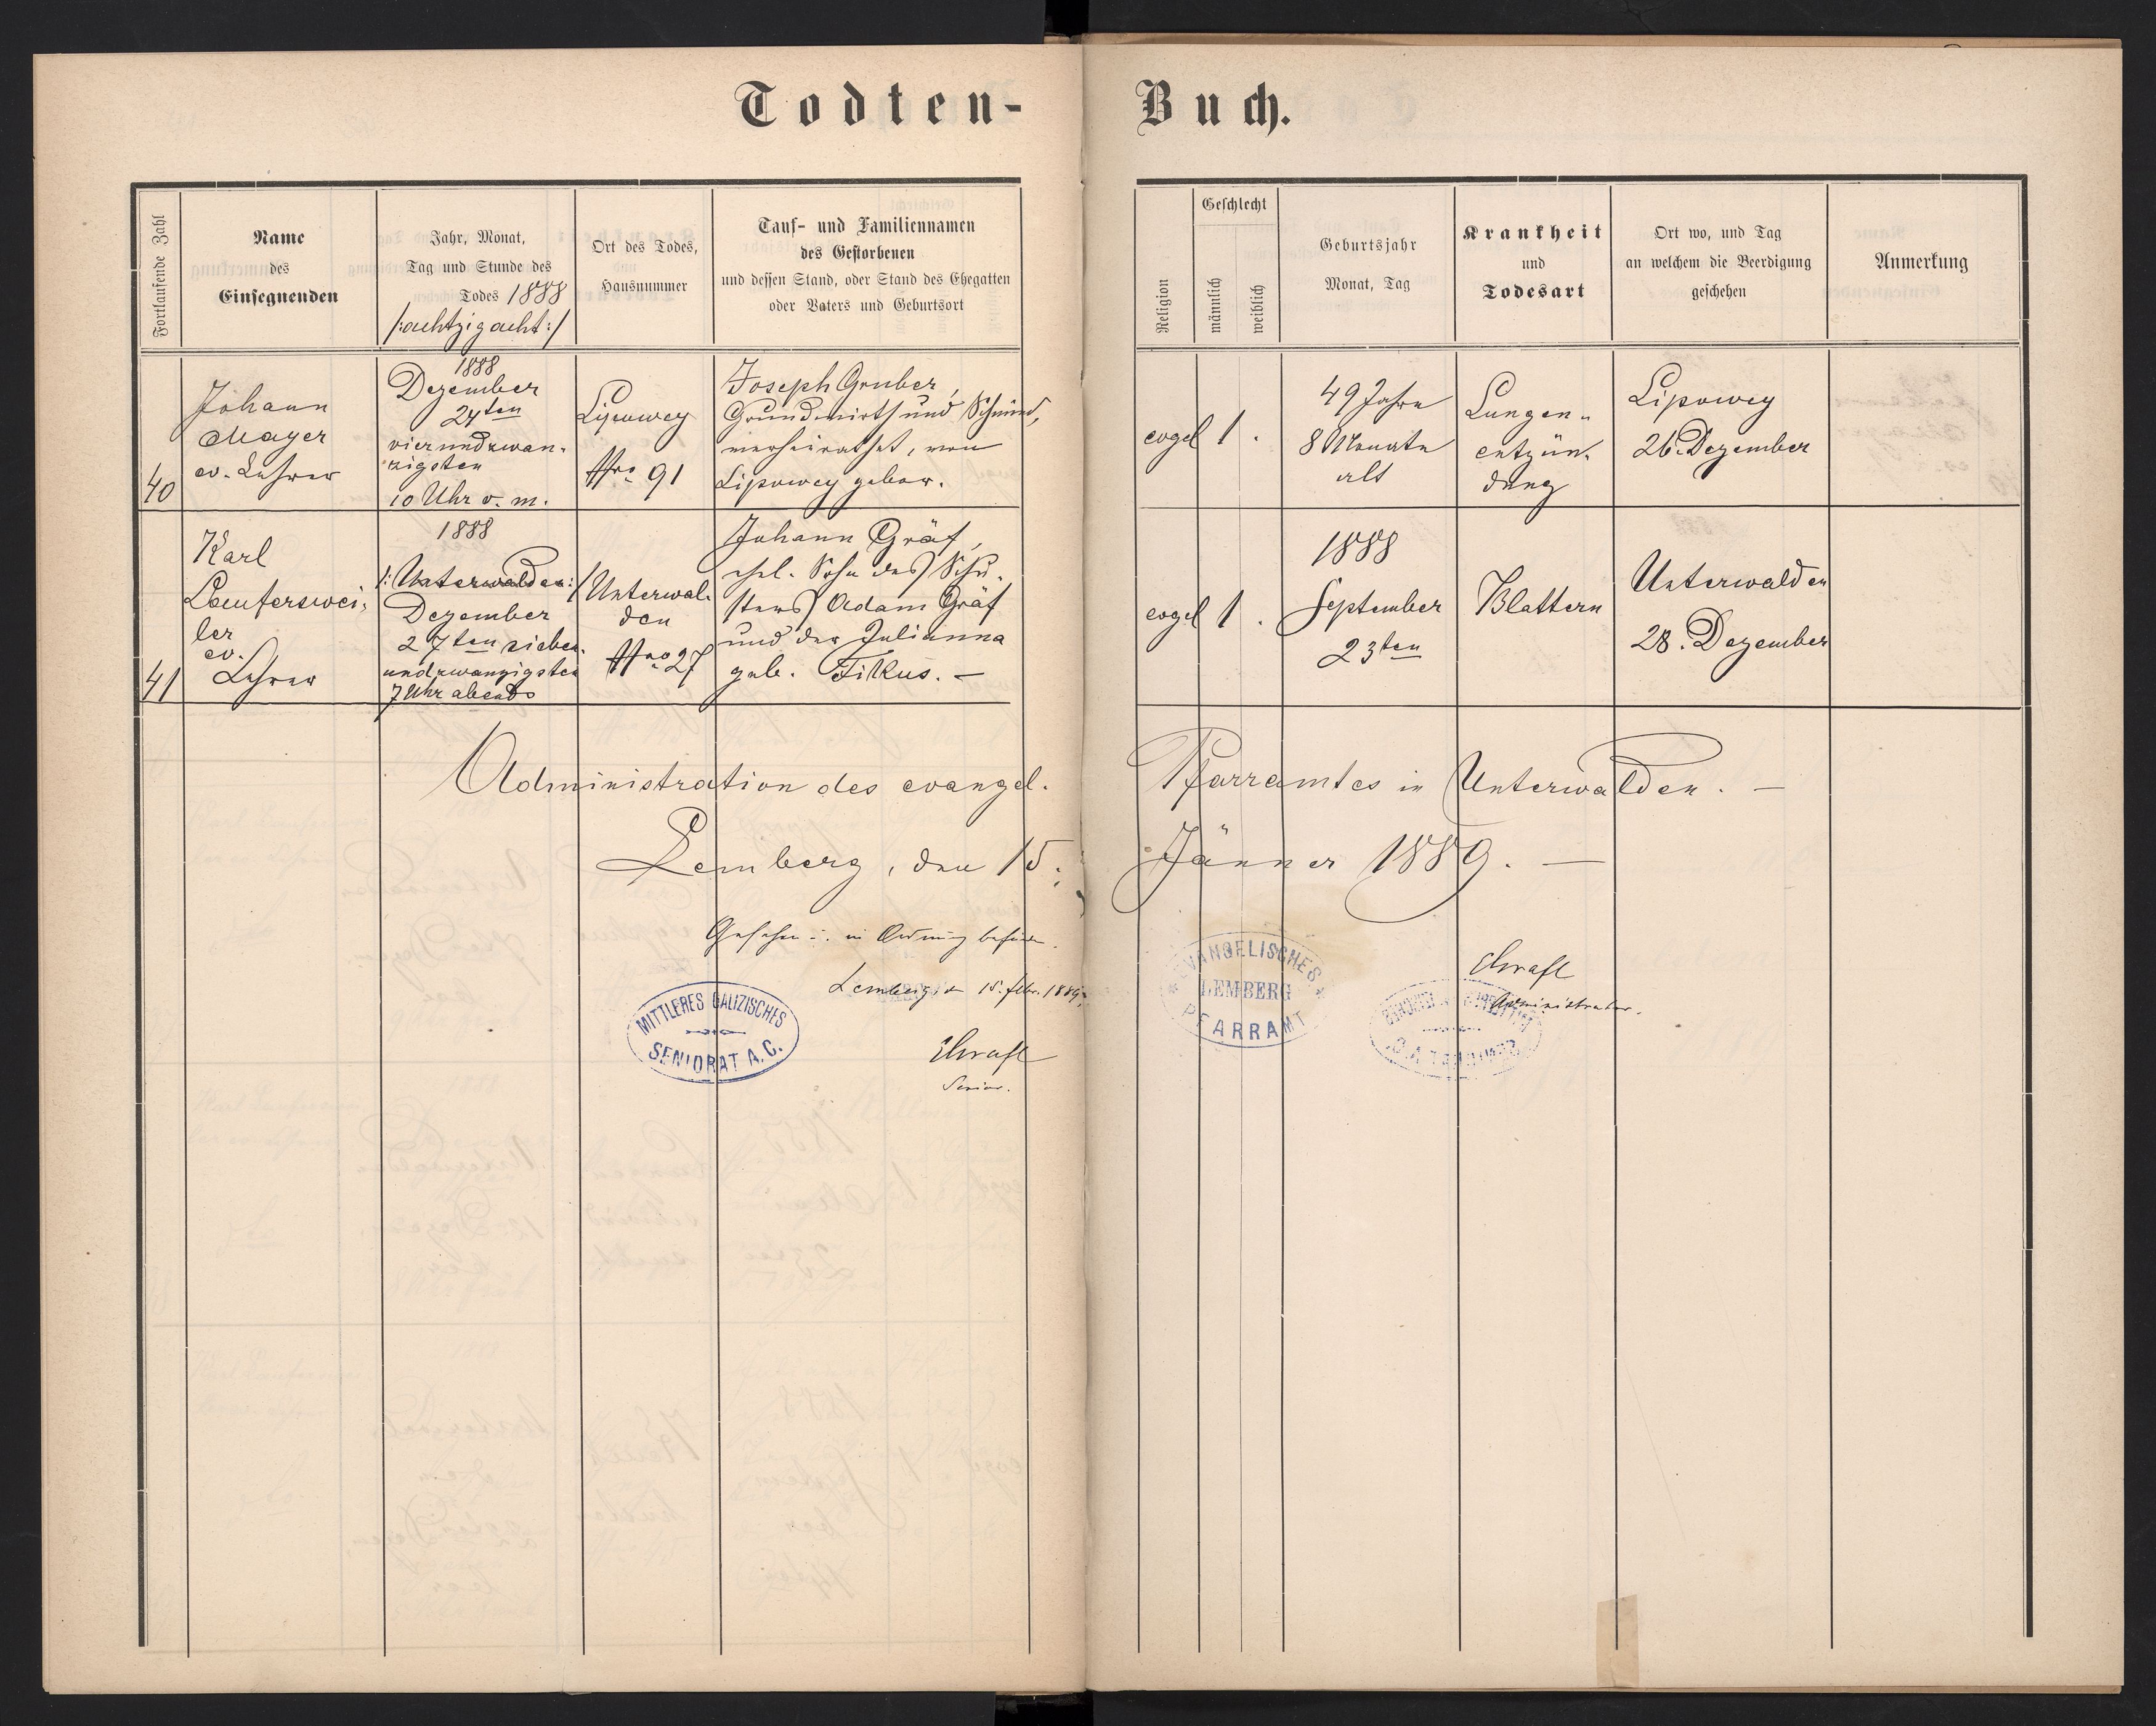 Todten-Buch.
Fortlaufende Zahl
Name
des
Einsegnenden
Jahr, Monat,
Tag und Stunde des
Todes 1888
/:achtzigacht:/
Ort des Todes,
Hausnummer
Tauf- und Familiennamen
des Gestorbenen
und dessen Stand, oder Stand des Ehegatten
oder Vaters und Geburtsort
Religion
Geschlecht
männlich
weiblich
Geburtsjahr
Monat, Tag
Krankheit
und
Todesart
Ort wo, und Tag
an welchem die Beerdigung
geschehen
Anmerkung
40
Johann
Mayer
ev. Lehrer
1888
Dezember
24ten
vierundzwan-
zigsten
10 Uhr v. m.
Lipowey
Nro 91
Joseph Gruber,
Grundwirth und Schmied,
verheirathet, von
Lipowey gebor.
evgel
1
.
49 Jahre
8 Monate
alt
Lungen-
entzün-
dung
Lipowey
26. Dezember
41
Karl
Laufenswei-
ler
ev.
Lehrer
1888
/:Unterwalden:/
Dezember
27ten sieben-
undzwanzigsten
7 Uhr abends
Unterwal-
den
Nro 27
Johann Gräf,
ehel. Sohn des Schu-
sters Adam Gräf
und der Julianna
geb. Filkus. —
evgel
1
.
1888
September
23ten
Blattern
Unterwalden
28. Dezember
Administration des evangel. Pfarramtes in Unterwalden. —
Lemberg, den 15. Jänner 1889. —
Gesehen u. in Ordnung befunden.
Lemberg, d. 15. Febr. 1889.
MITTLERES GALIZISCHES
SENIORAT A.C.
Senior.
EVANGELISCHES
LEMBERG
PFARRAMT
Administrator.